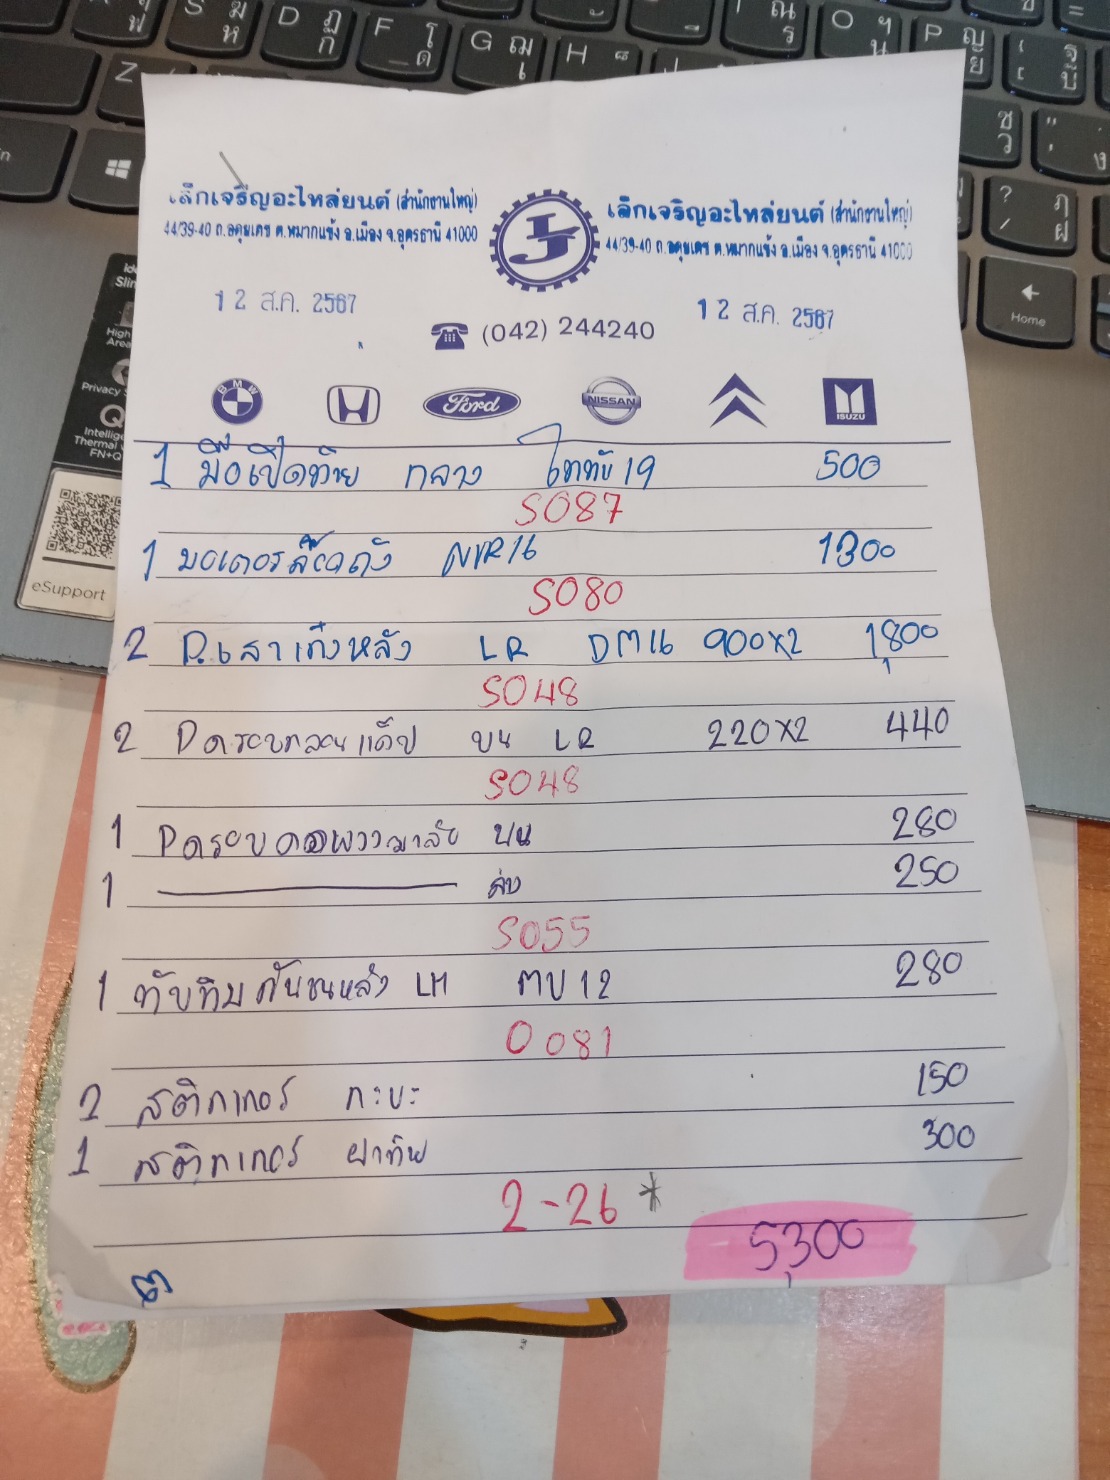 เล็กเจริญอะไหล่ยนต์ (สำนักงานใหญ่)
44/39-40 ถ.อดุมเดช ต.หมากแข้ง อ.เมือง จ.อุดรธานี 41000
เล็กเจริญอะไหล่ยนต์ (สำนักงานใหญ่)
44/39-40 ถ.อดุมเดช ต.หมากแข้ง อ.เมือง จ.อุดรธานี 41000
12 ส.ค. 2567
12 ส.ค. 2567
(042) 244240
BMW Ford NISSAN ISUZU
1 มือเปิดท้าย กลาง ไททัน 19 500
S087
1 มอเตอร์ล๊อคถัง NVR16 1300
S080
2 D.เสาเก๋งหลัง LR DM16 900x2 1,800
S048
2 Dครอบกลอนแค็ป บน LR 220x2 440
S048
1 Dครอบคอพวงมาลัย บน 280
1 ล่าง 250
S055
1 ทับทิมกันชนหลัง LH 12 280
0081
2 สติกเกอร์ กะบะ 150
1 สติกเกอร์ ฝาท้าย 300
2-26 *
5,300
eSupport
Home
Privacy
Thermal
FN+Q
Z S D F G H O P